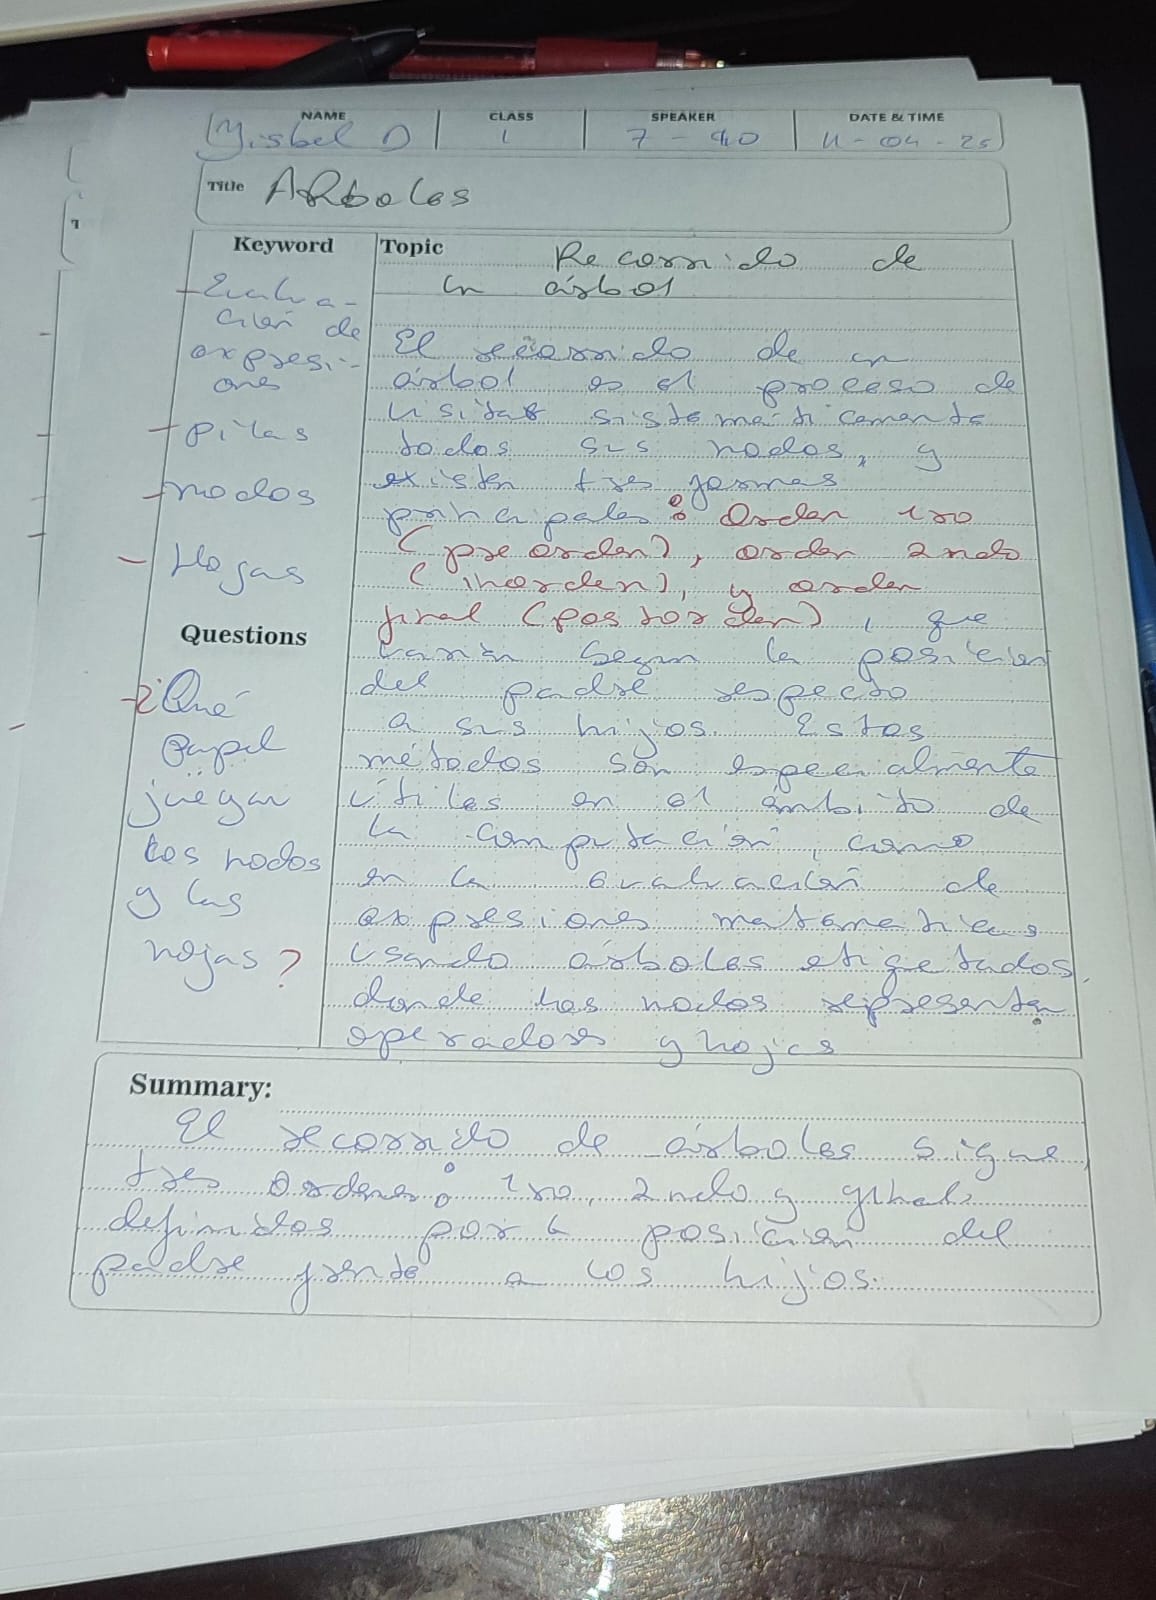 NAME CLASS SPEAKER DATE & TIME
Yisbel D 1 7-40 11-04-25
Title Arboles
Keyword
-Evalua-
ción de
expresi-
ones
-pilas
-nodos
-Hojas
Questions
-¿Qué
papel
juegan
los nodos
y las
hojas?
Topic Recorrido de
un árbol
El recorrido de un
árbol es el proceso de
visitar sistemáticamente
todos sus nodos, y
existen tres formas
principales: Orden 1ro
(preorden), orden 2ndo
(inorden), y orden
final (postorden), que
varían según la posición
del padre respecto
a sus hijos. Estos
métodos son especialmente
útiles en el ámbito de
la computación, como
en la evaluación de
expresiones matemáticas
usando árboles etiquetados,
donde los nodos representan
operadores y hojas
Summary:
El recorrido de árboles sigue
tres Ordenes: 1ro, 2ndo y final
definidos por la posición del
padre frente a los hijos.